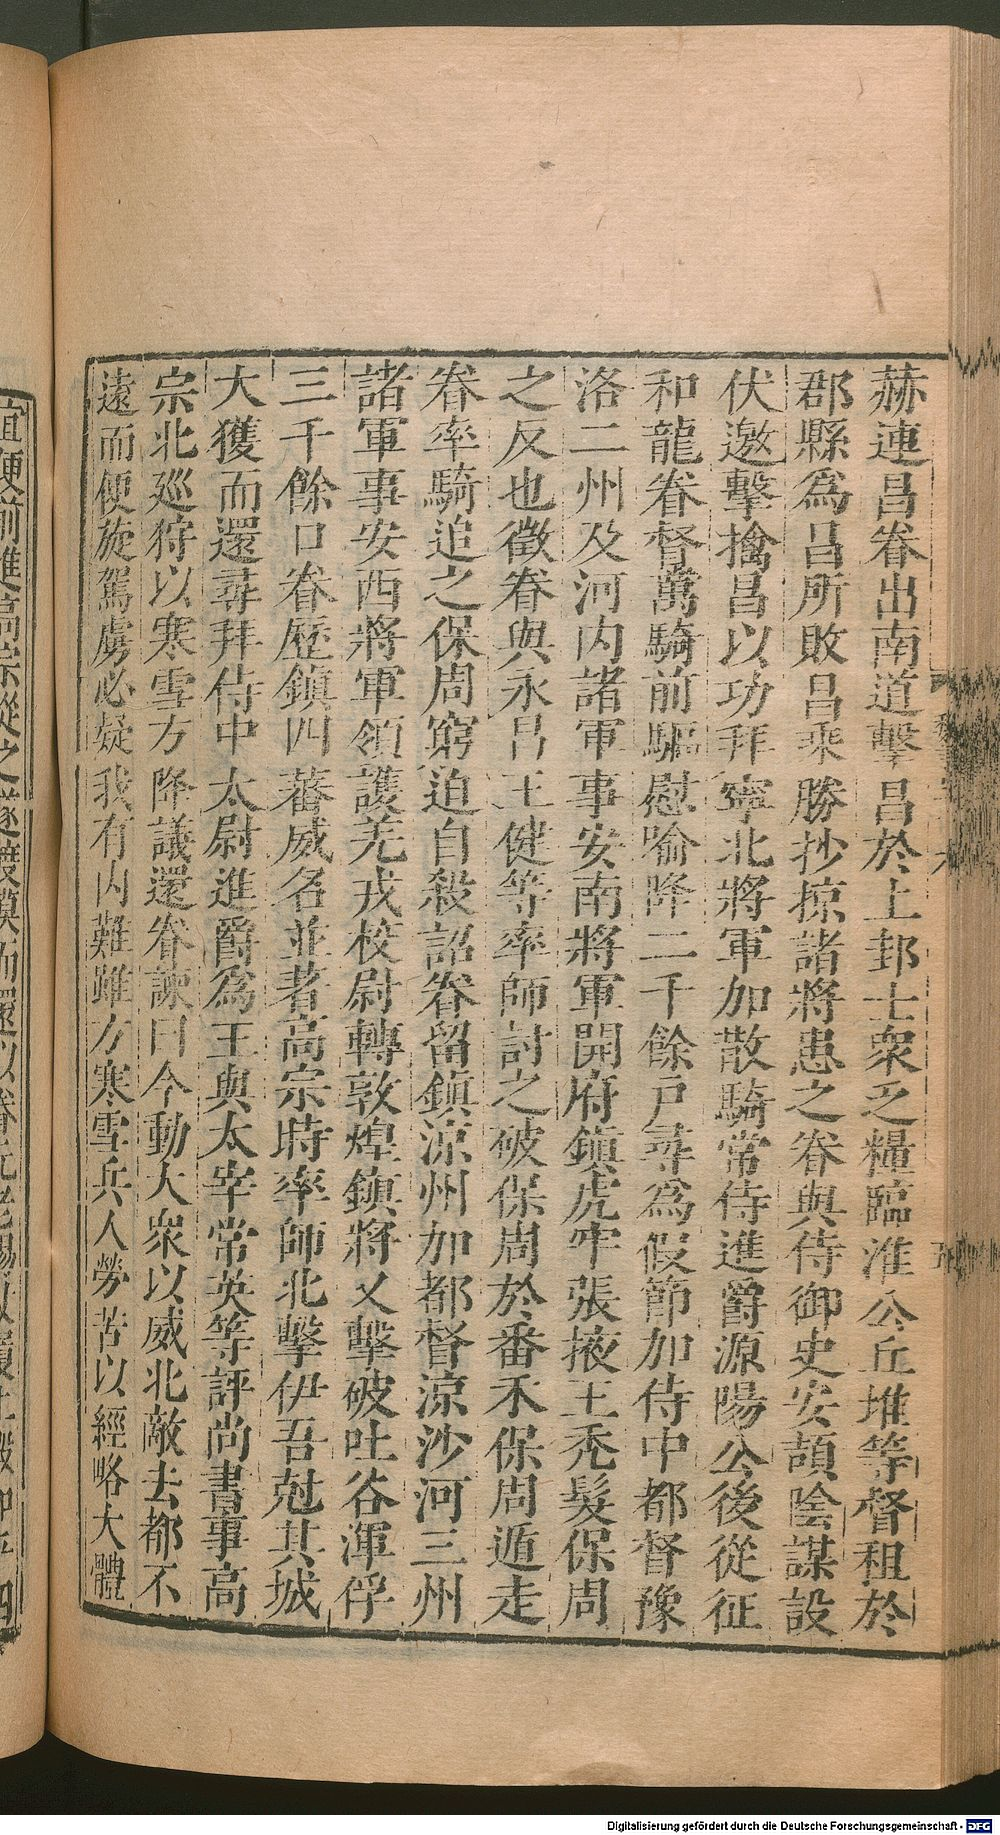 赫連昌眷出南道擊昌於上邽士衆乏糧臨淮公丘堆等督租於
郡縣為昌所敗昌乘勝抄掠諸將患之眷與侍御史安頡陰謀設
伏邀擊擒昌以功拜寧北將軍加散騎常侍進爵源陽公後從征
和龍眷督萬騎前驅慰喻降二千餘戶尋為假節加侍中都督豫
洛二州及河内諸軍事安南將軍開府鎮虎牢張掖王禿髮保周
之反也徵眷與永昌王健等率師討之破保周於番禾保周遁走
眷率騎追之保周窮迫自殺詔眷留鎮涼州加都督涼沙河三州
諸軍事安西將軍領護羌戎校尉轉敦煌鎮將又擊破吐谷渾俘
三千餘口眷歷鎮四蕃威名並著高宗時率師北擊伊吾尅其城
大獲而還尋拜侍中太尉進爵為王與太宰常英等評尚書事高
宗北巡狩以寒雪方降議還眷諫曰今動大衆以威北敵去都不
遠而便旋駕虜必疑我有内難雖方寒雪兵人勞苦以經略大體
宜便前進高宗從之遂渡漠而還以眷元老賜
Digitalisierung gefördert durch die Deutsche Forschungsgemeinschaft - DFG